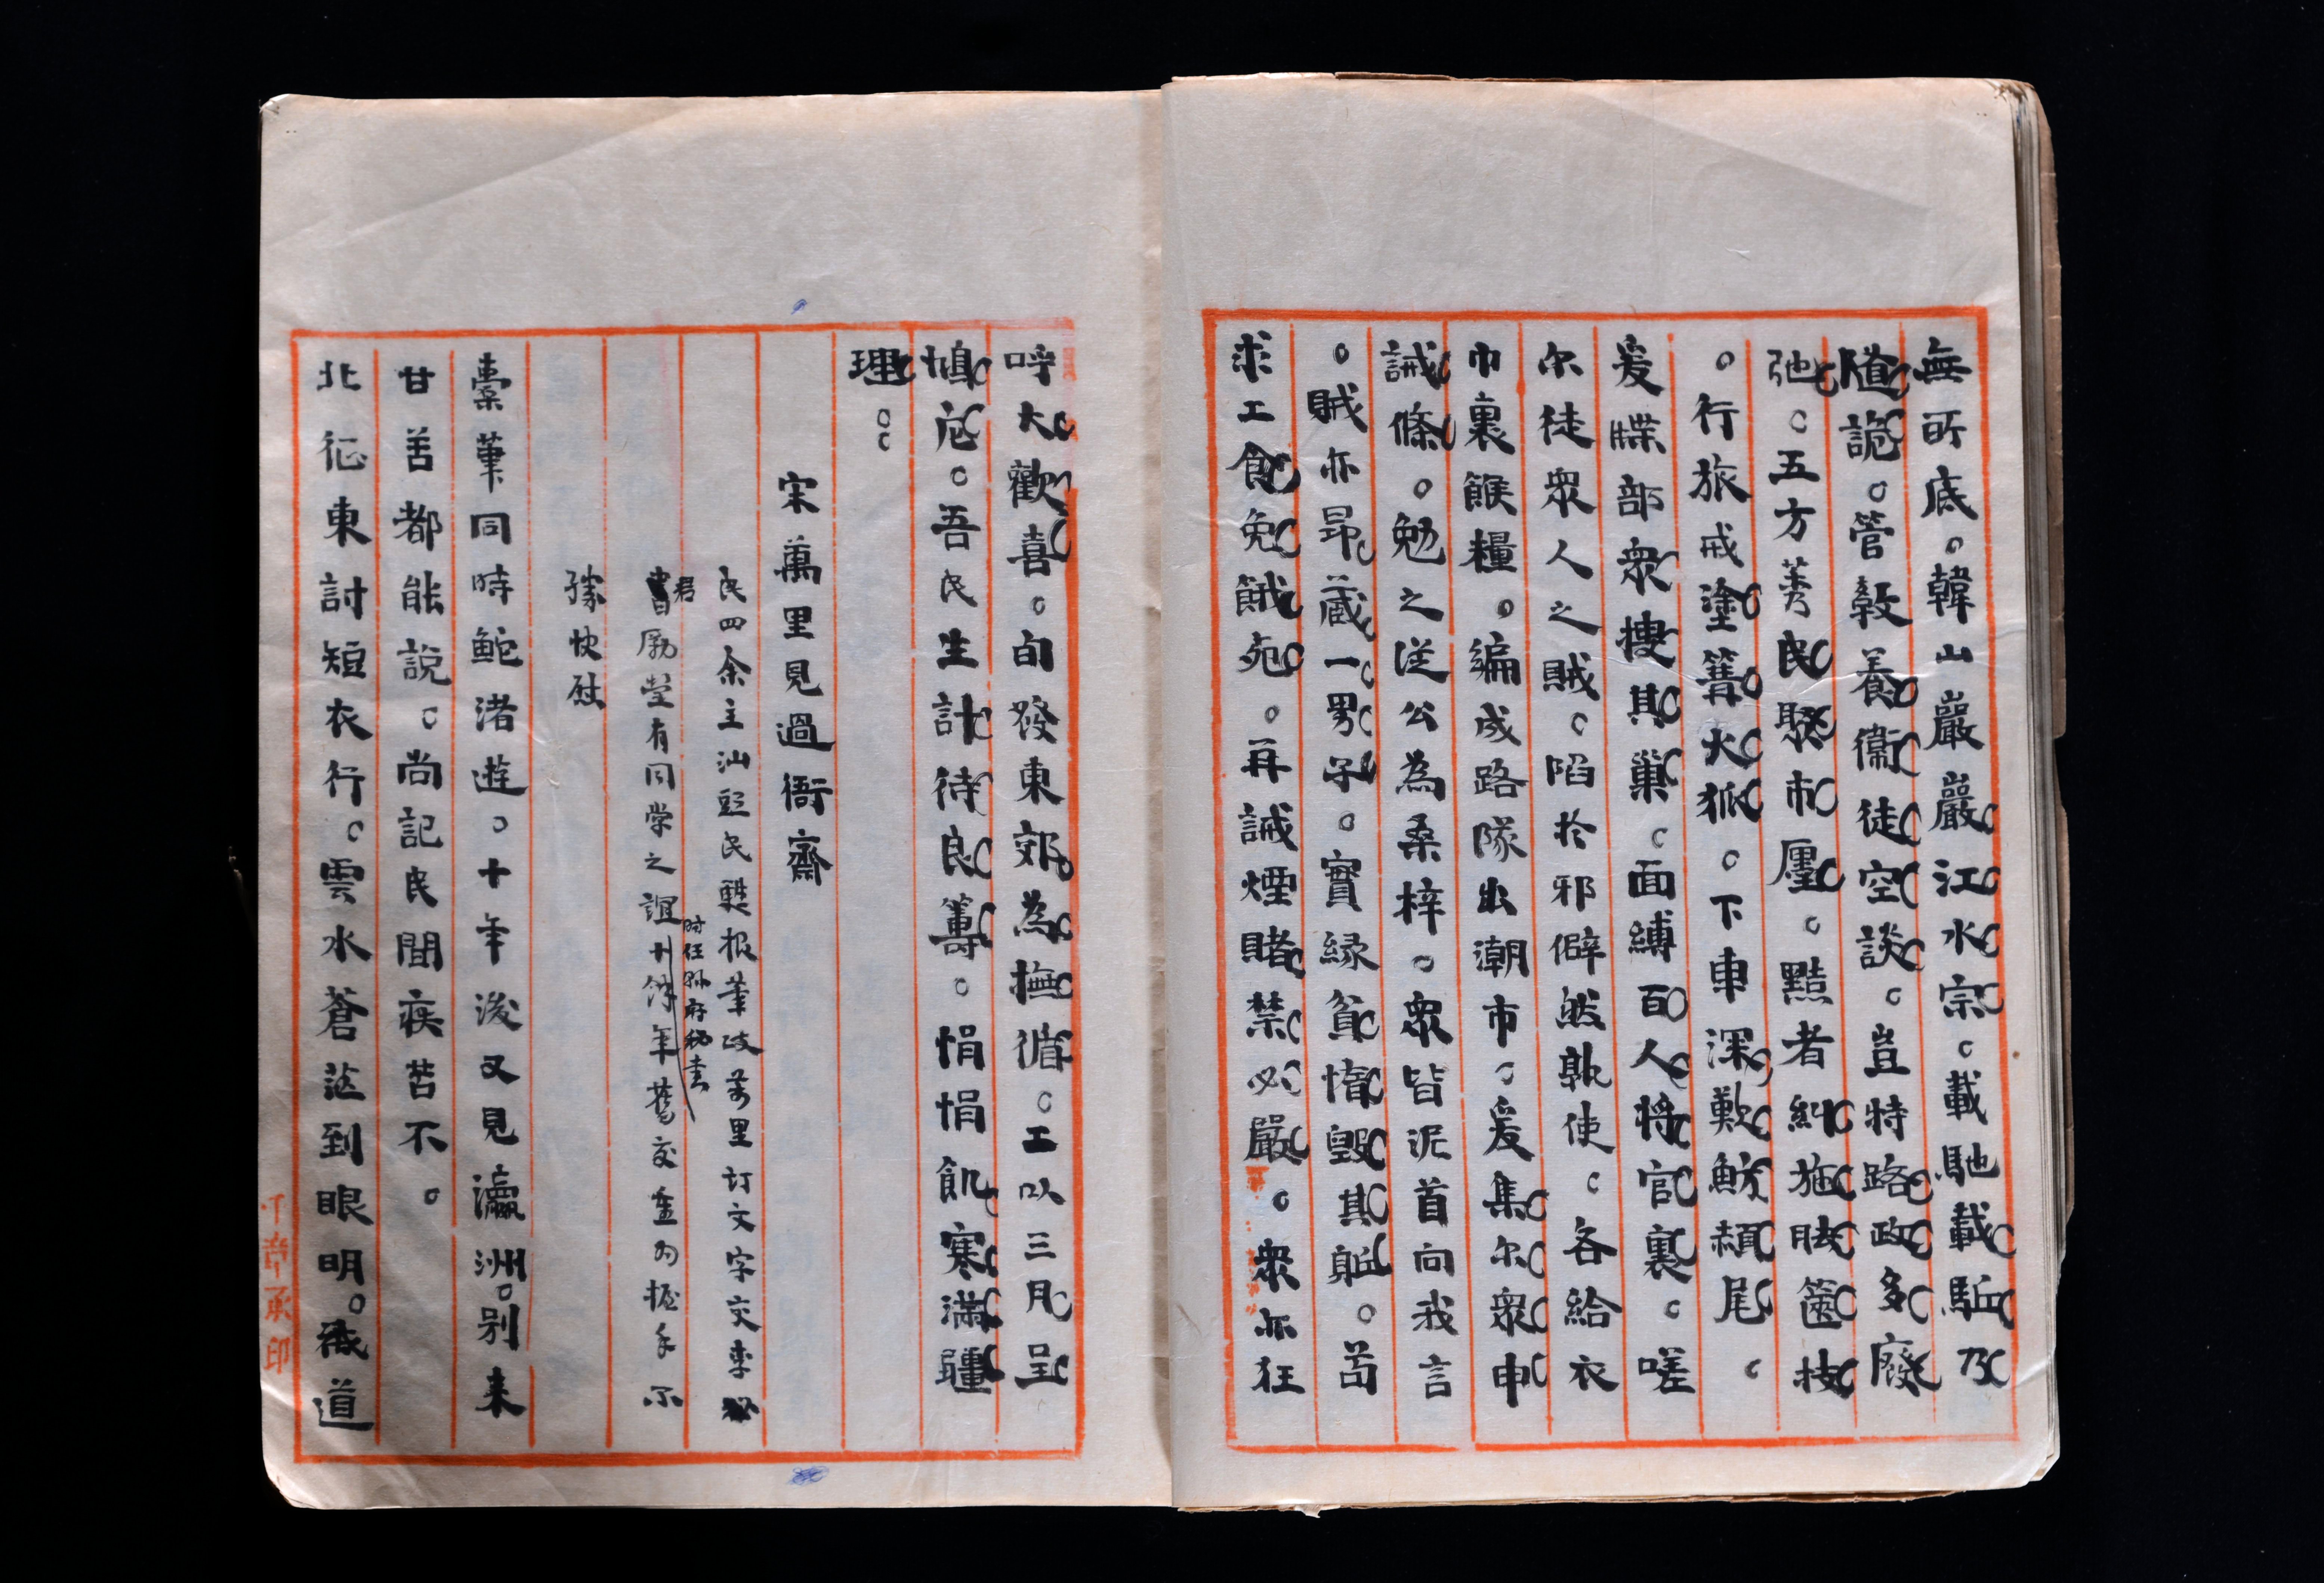 無所底。韓山嚴巖江水宗。載馳載驅乃
隨詭。管毂養衞徒空談。豈特路政多廢
弛。五方莠民聚市廛。黠者糾施胠篋技
。行旅戒塗篝火狐。下車深歎魴赬尾。
爰牒部衆摟其巢。面縛百人將官裏。嗟
尔徒衆人之賊。陷於邪僻然孰使。各給衣
巾裹餱糧。編成路隊出潮市。爰集尔衆申
誡條。勉之従公為桑梓。衆皆泥首向我言
。賊亦昂藏一男子。實緣貧惰毀其躯。苟
求工食免餓死。再誡煙賭禁必嚴。衆亦狂
呼大歡喜。自發東郊為撫循。工以三月呈
鳩庀。吾民生計待良籌。悁悁飢寒滿疆
理。
宋萬里見過衙齋
民四余主汕頭民甦报筆政萬里订文字交李
君励莹有同学之誼十馀年舊交重为握手不
时任縣府秘書
孫快慰
橐筆同時鮀渚遊。十年後又見瀛洲。别来
甘苦都能説。尚記民間疾苦不。
北征東討短衣行。雲水蒼茫到眼明。衹道
承印